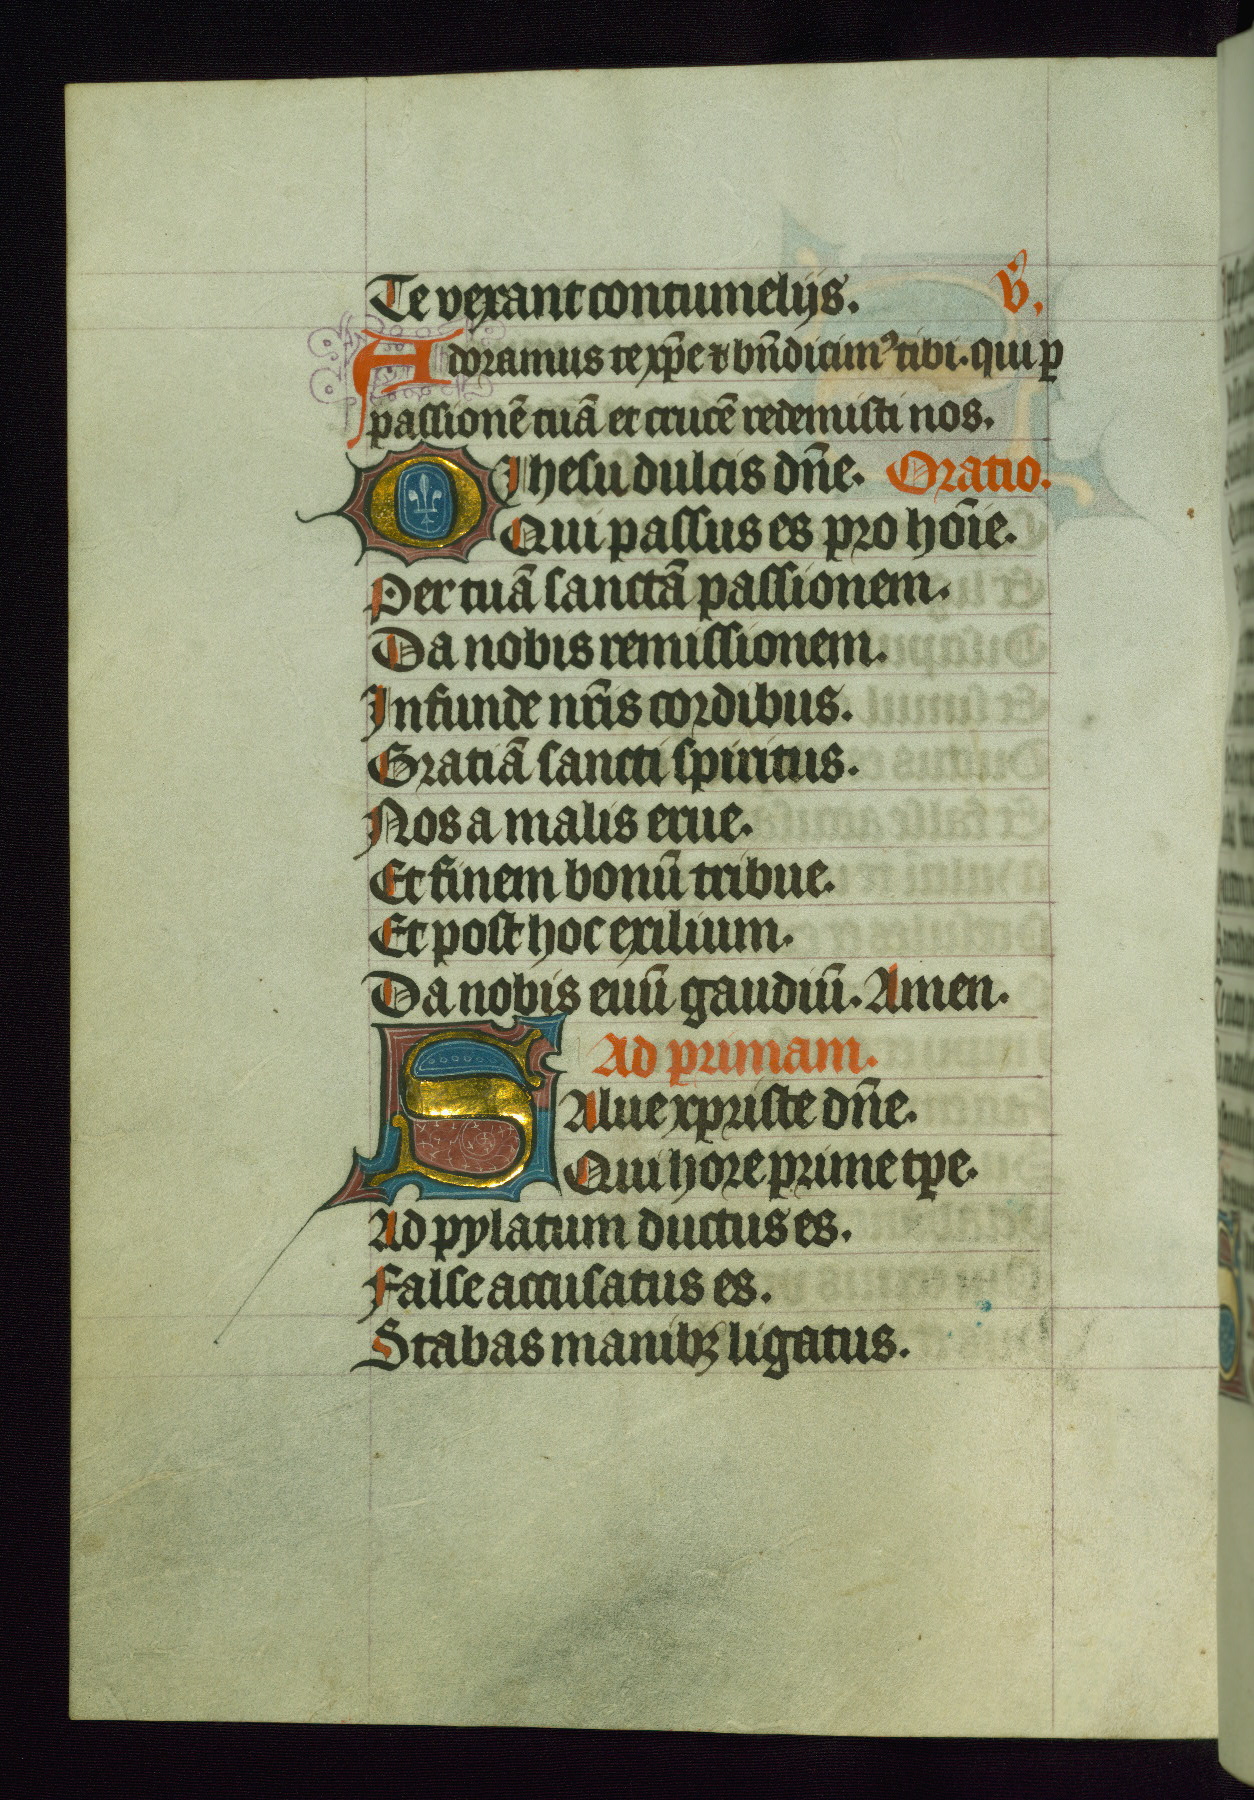 Te vexant contumelijs. V̄.
Adoramus te xp̄e & bn̄dicimꝰ tibi. qui ꝑ
passionē tuā et crucē redemisti nos.
O Jhesu dulcis dn̄e. Oratio.
Qui passus es pro hoīe.
Per tuā sanctā passionem.
Da nobis remissionem.
Infunde nr̄is cordibus.
Gratiā sancti spiritus.
Nos a malis erue.
Et finem bonū tribue.
Et post hoc exilium.
Da nobis euū gaudiū. Amen.
Ad primam.
SAlue xpriste dn̄e.
Qui hore prime tp̄e.
Ad pylatum ductus es.
False accusatus es.
Stabas manibꝫ ligatus.